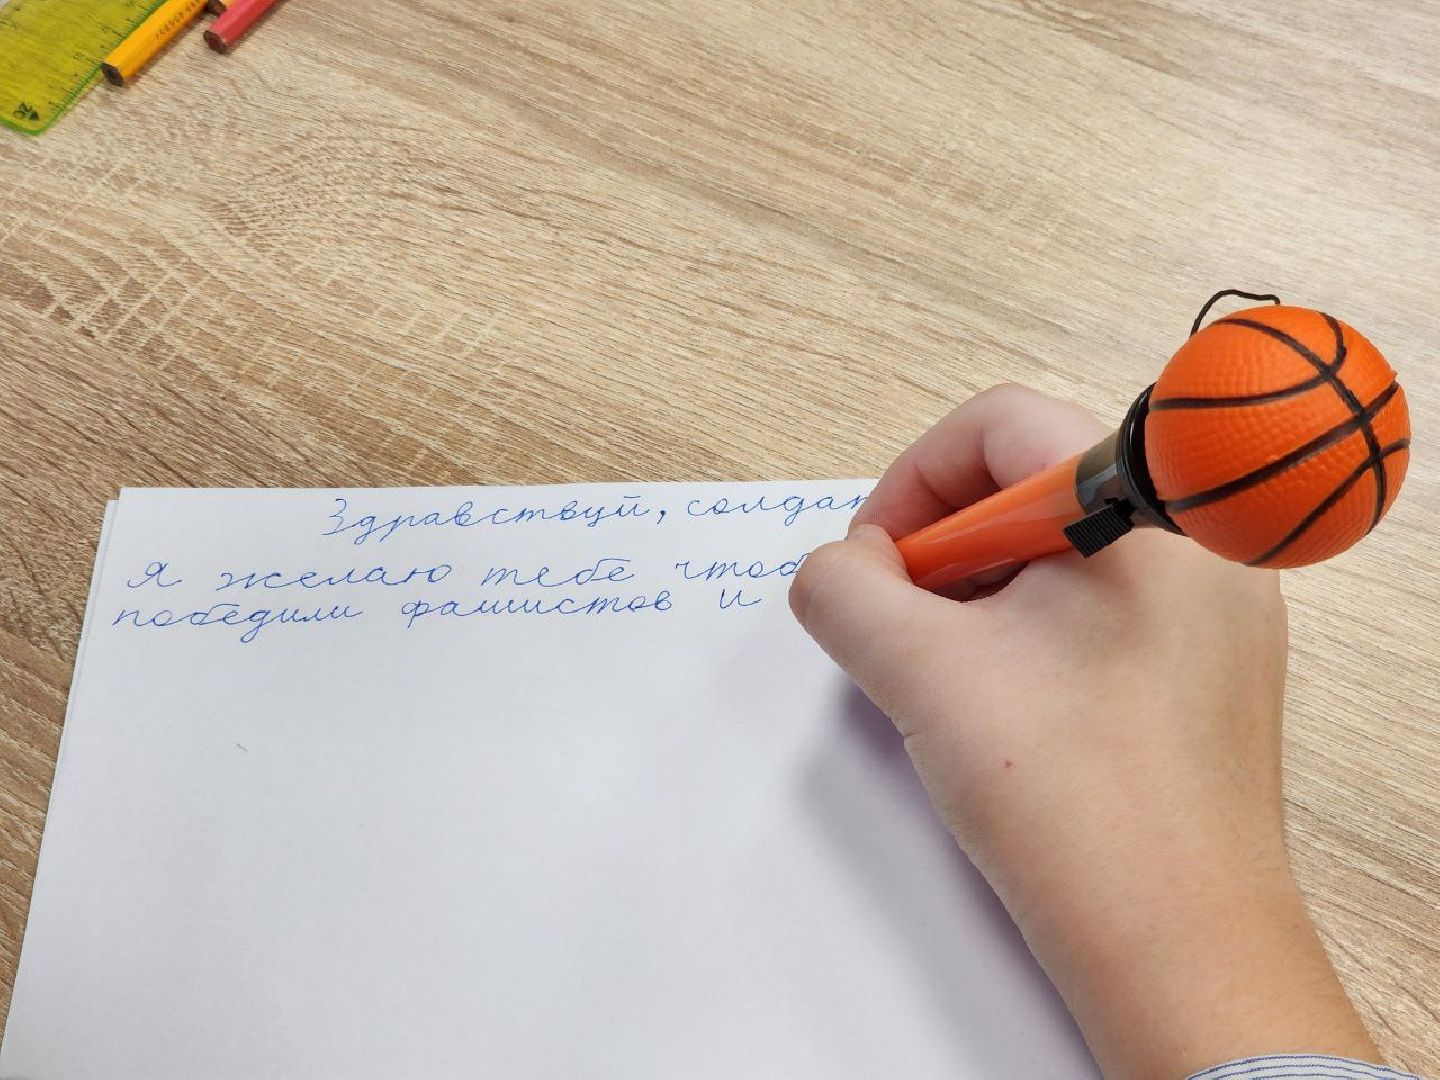 Здравствуй, солдат
Я желаю тебе чтоб
победили фашистов и
20